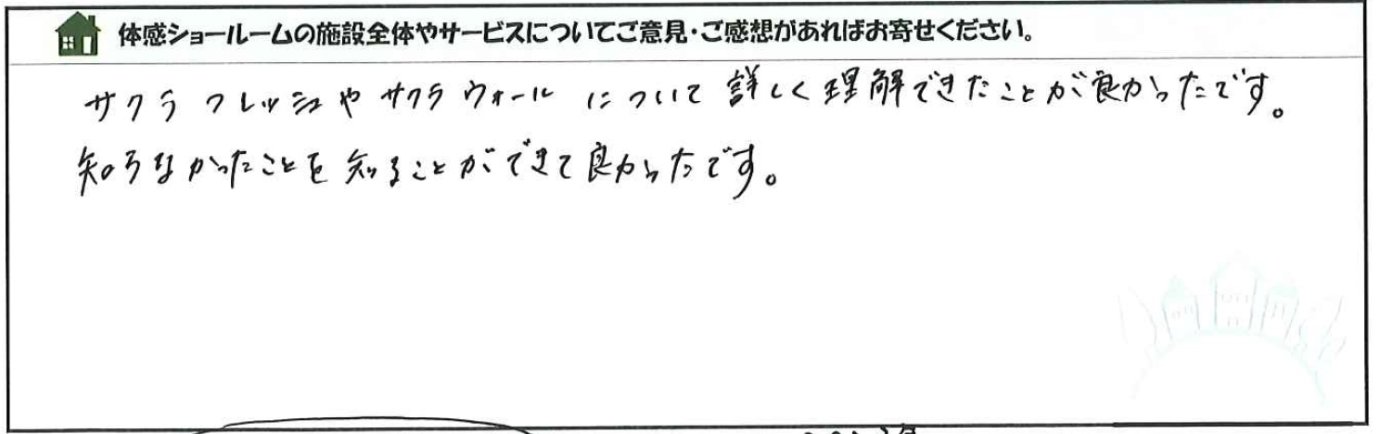 体感ショールームの施設全体やサービスについてご意見・ご感想があればお寄せください。
サクラフレッシュやサクラウォールについて詳しく理解できたことが良かったです。
知らなかったことを知ることができて良かったです。